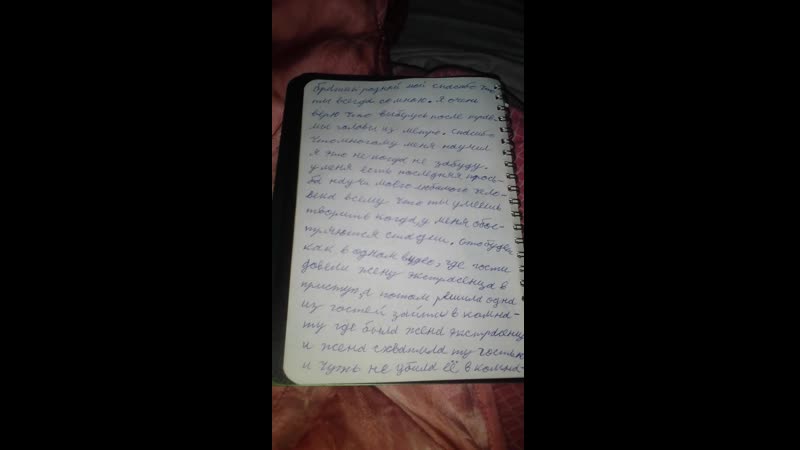 Братик родной мой спасибо что
ты всегда со мною. Я очень
верю что выберусь после травмы
мы головы из метро. Спасибо
что многому меня научил
я это не когда не забуду.
у меня есть последняя прось-
ба научи моего любимого чело-
века всему что ты умеешь
творить когда у меня обос-
тряются стадии. Это будет
как в одном видео, где гости
довели жену экстрасенса в
приступ, а потом решила одна
из гостей зайти в комна-
ту где была жена экстрасенса
и жена схватила ту гостью
и чуть не убила её, в комна-